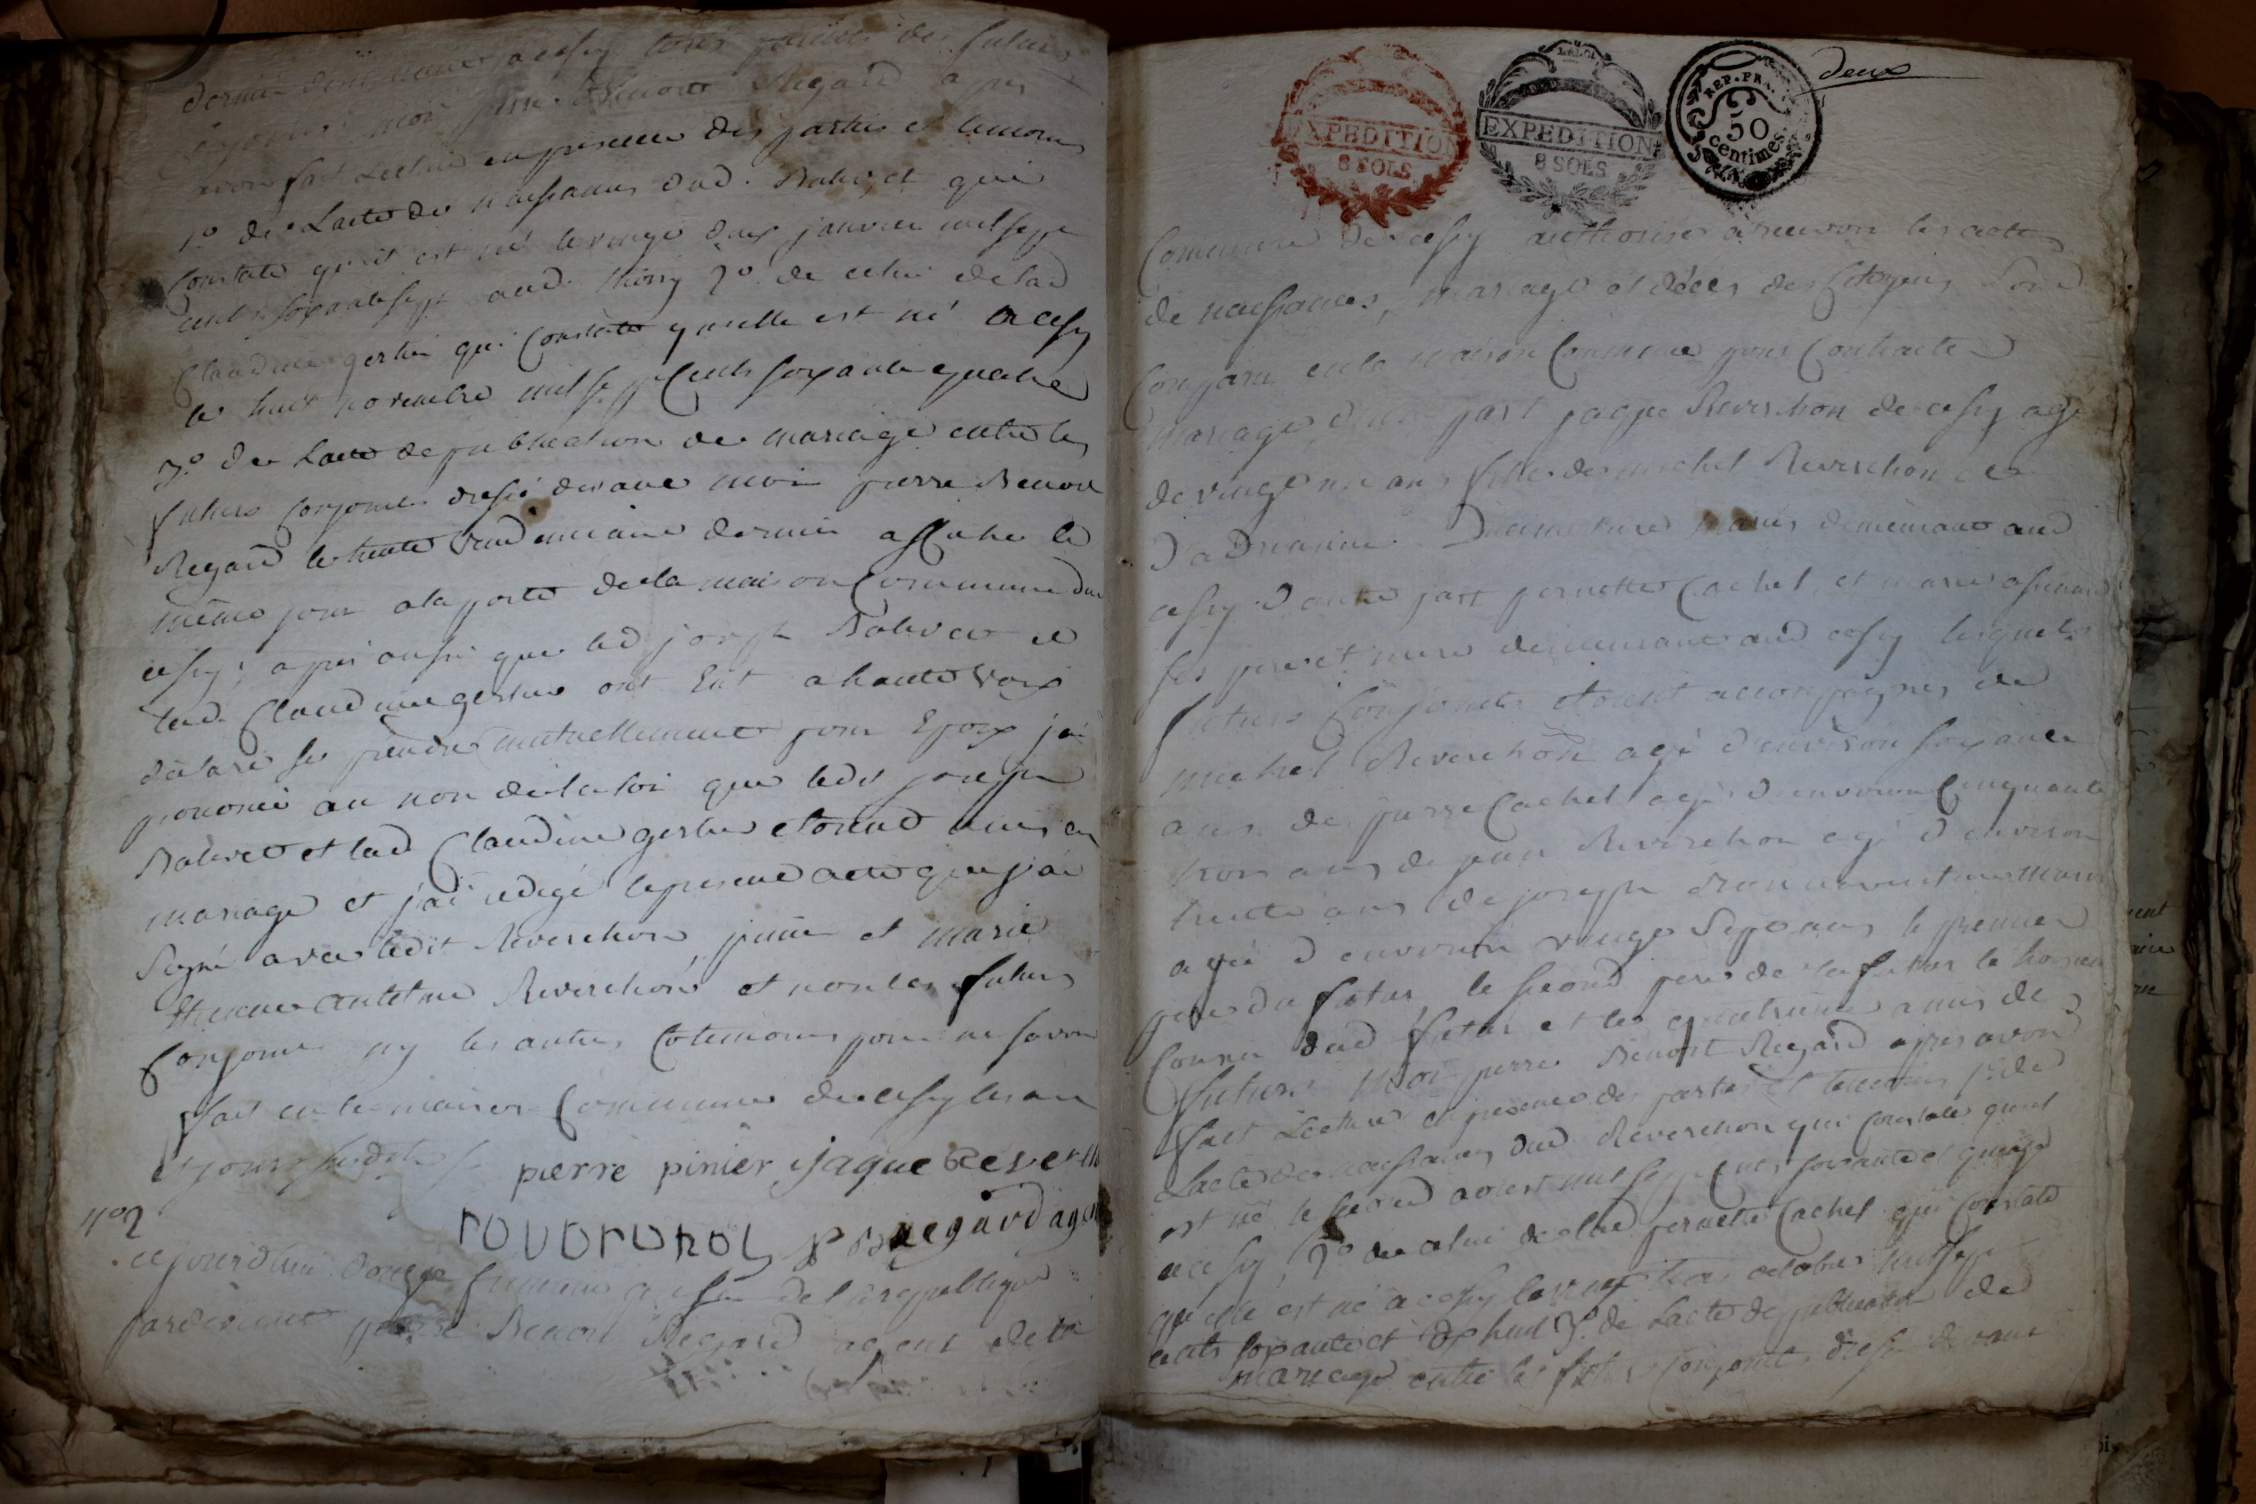 dernier demeurant a cessy tous parents des futurs
conjoints moi pierre Benoit Regard apres
avoir fait Lecture en presence des parties et temoins
1° de Lacte de naissance dud. Balivet qui
Constate qu'il est né le vingt deux janvier mil sept
cents soixante sept aud. thoiry 2° de celui de lad
Claudine gerlier qui Constate quelle est né a cessy
le huit novembre mil sept Cents soixante quatre
3° de Lacte de publication de mariage entre les
futurs Conjoints dressé devant moi pierre Benoit
Regard le trente vendemiaire dernier affiché le
même jour a la porte de la maison Commune dud
cessy; apres aussi que led joseph Balivet et
lad. Claudine gerlier ont Eut a haute voix
déclaré se prendre mutuellement pour Epoux j'ai
prononcé au nom de la loi que ledit joseph
Balivet et lad Claudine gerlier etoient unis en
mariage et j'ai redigé le present acte que j'ai
Signé avec ledit Reverchon pinier et marie
Reverchon et non les futurs
Conjoints ny les autres temoins pour ne savoir
fait en la maison Commune de cessy les an
et jour susdits
pierre pinier jaque Reverch
P B Regard agent
n° 2
cejourdhui douze frimaire de la republique
pardevant pierre Benoit Regard agent de la
EXPEDITION
8 SOLS
LA LOI
EXPEDITION
8 SOLS
REP. FRA.
50
centimes
deux
Commune de cessy authorisé a recevoir les actes
de naissances, mariage et décès des Citoyens Sont
Comparu en la maison Commune pour Contracter
mariage d'une part jaque Reverchon de cessy agé
de vingt un ans fils de michel Reverchon et
demeurant aud
cessy d'autre part pernette Cachet et marie
ses pere et mere demeurant aud cessy lesquels
futurs Conjoints etoient accompagnés de
michel Reverchon agé d'environ soixante
ans de pierre Cachet agé d'environ Cinquante
trois ans de jean Reverchon agé d'environ
trente ans de joseph
agé d'environ vingt Sept ans le premier
pere du futur le second pere de la future le troisieme
Cousin dud futur et le quatrieme amis des
futurs moi pierre Benoit Regard apres avoir
fait Lecture en presence des parties et temoins 1° de
Lacte de naissance dud Reverchon qui Constate quil
est né le aoust mil sept Cents soixante et quinze
a cessy, 2° de celui de lad pernette Cachet qui Constate
quelle est né a cessy le vingt trois octobre mil sept
cents soixante et dix huit 3° de Lacte de publication de
mariage entre les futurs Conjoints dressé devant